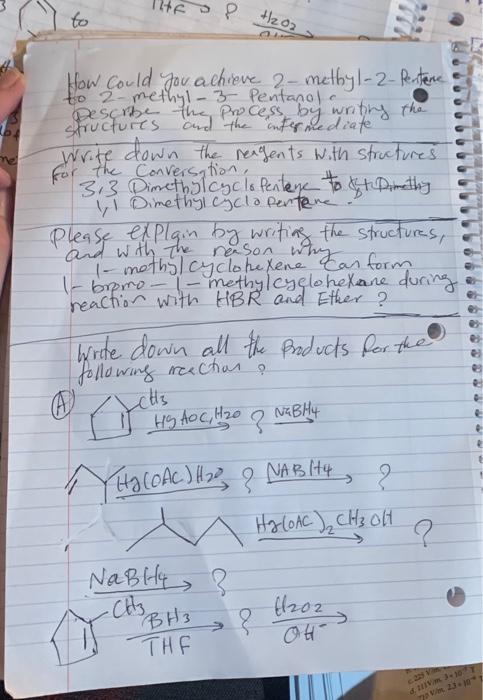 to THF ? H2O2
How could you achieve 2-methyl-2-Pentene
to 2-methyl-3-Pentanol.
Describe the process by writing the
structures and the intermediate
Write down the reagents with structures
for the Conversation,
3,3 Dimethylcyclo Pentene to Dimethy
1,1 Dimethylcyclopentane.
Please explain by writing the structures,
and with the reason why
1-methylcyclohexene can form
1-bromo-1-methylcyclohexane during
reaction with HBR and Ether ?
Write down all the Products for the
following reaction ?
(A) CH3 HgAOC, H2O ? NaBH4
Hg(OAC)H2O ? NABH4 ?
Hg(OAC)2 CH3OH ?
NaBH4 ?
CH3 BH3 THF ? H2O2 OH-